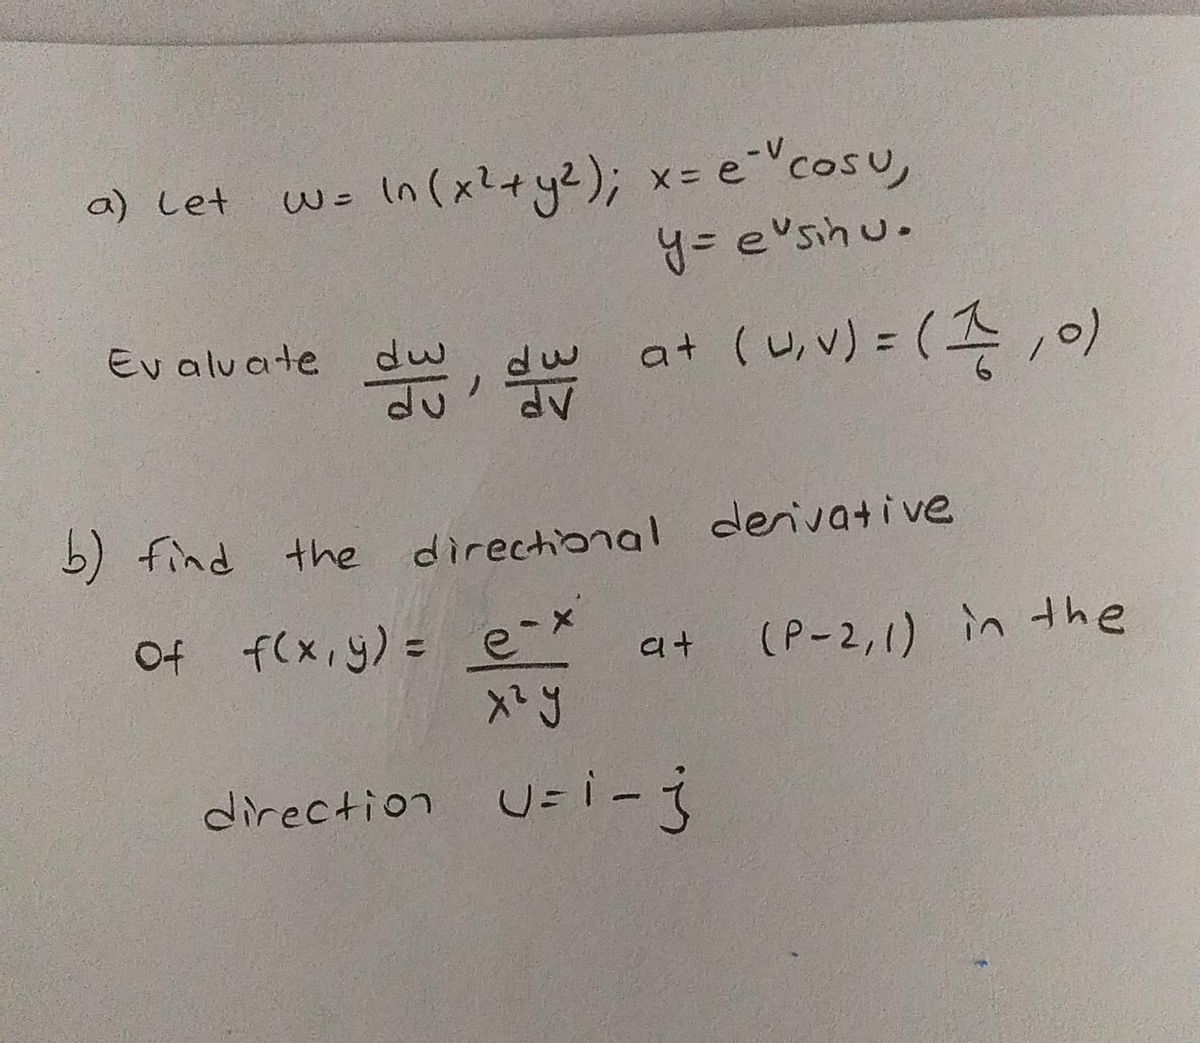 a) Let w = ln(x²+y²); x = e⁻ᵛcosu,
y = eᵛsinu.
Evaluate dw/du, dw/dv at (u,v) = (π/6, 0)
b) find the directional derivative
of f(x,y) = e⁻ˣ/x²y at (P-2,1) in the
direction U=i-j